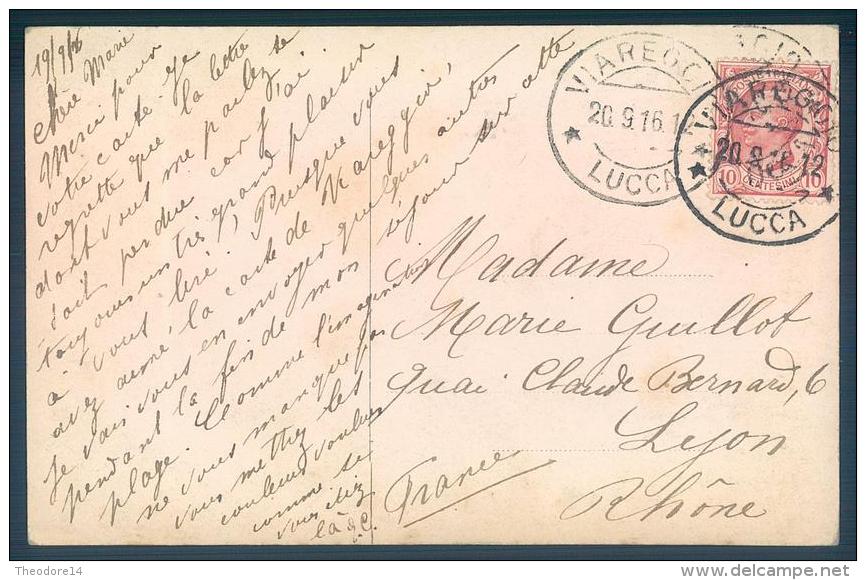 19/9/16
Chère Marie
Merci pour
votre carte. Je
regrette que la lettre
dont vous me parlez se
soit perdue car j'ai
toujours un très grand plaisir
à vous lire. Puisque vous
avez aimé la carte de Viareggio,
je vais vous en envoyer quelques autres
pendant la fin de mon séjour sur cette
plage. Comme l'imagination
ne vous manque pas
vous mettrez les
couleurs voulues
comme si
vous étiez
là
VIAREGGIO
20.9.16.1
LUCCA
VIAREGGIO
20.9.16.12
LUCCA
POSTE ITALIANE
10 10
CENTESIMI
Madame
Marie Guillot
Quai Claude Bernard, 6
Lyon
Rhône
France
Theodore14
delcampe.net